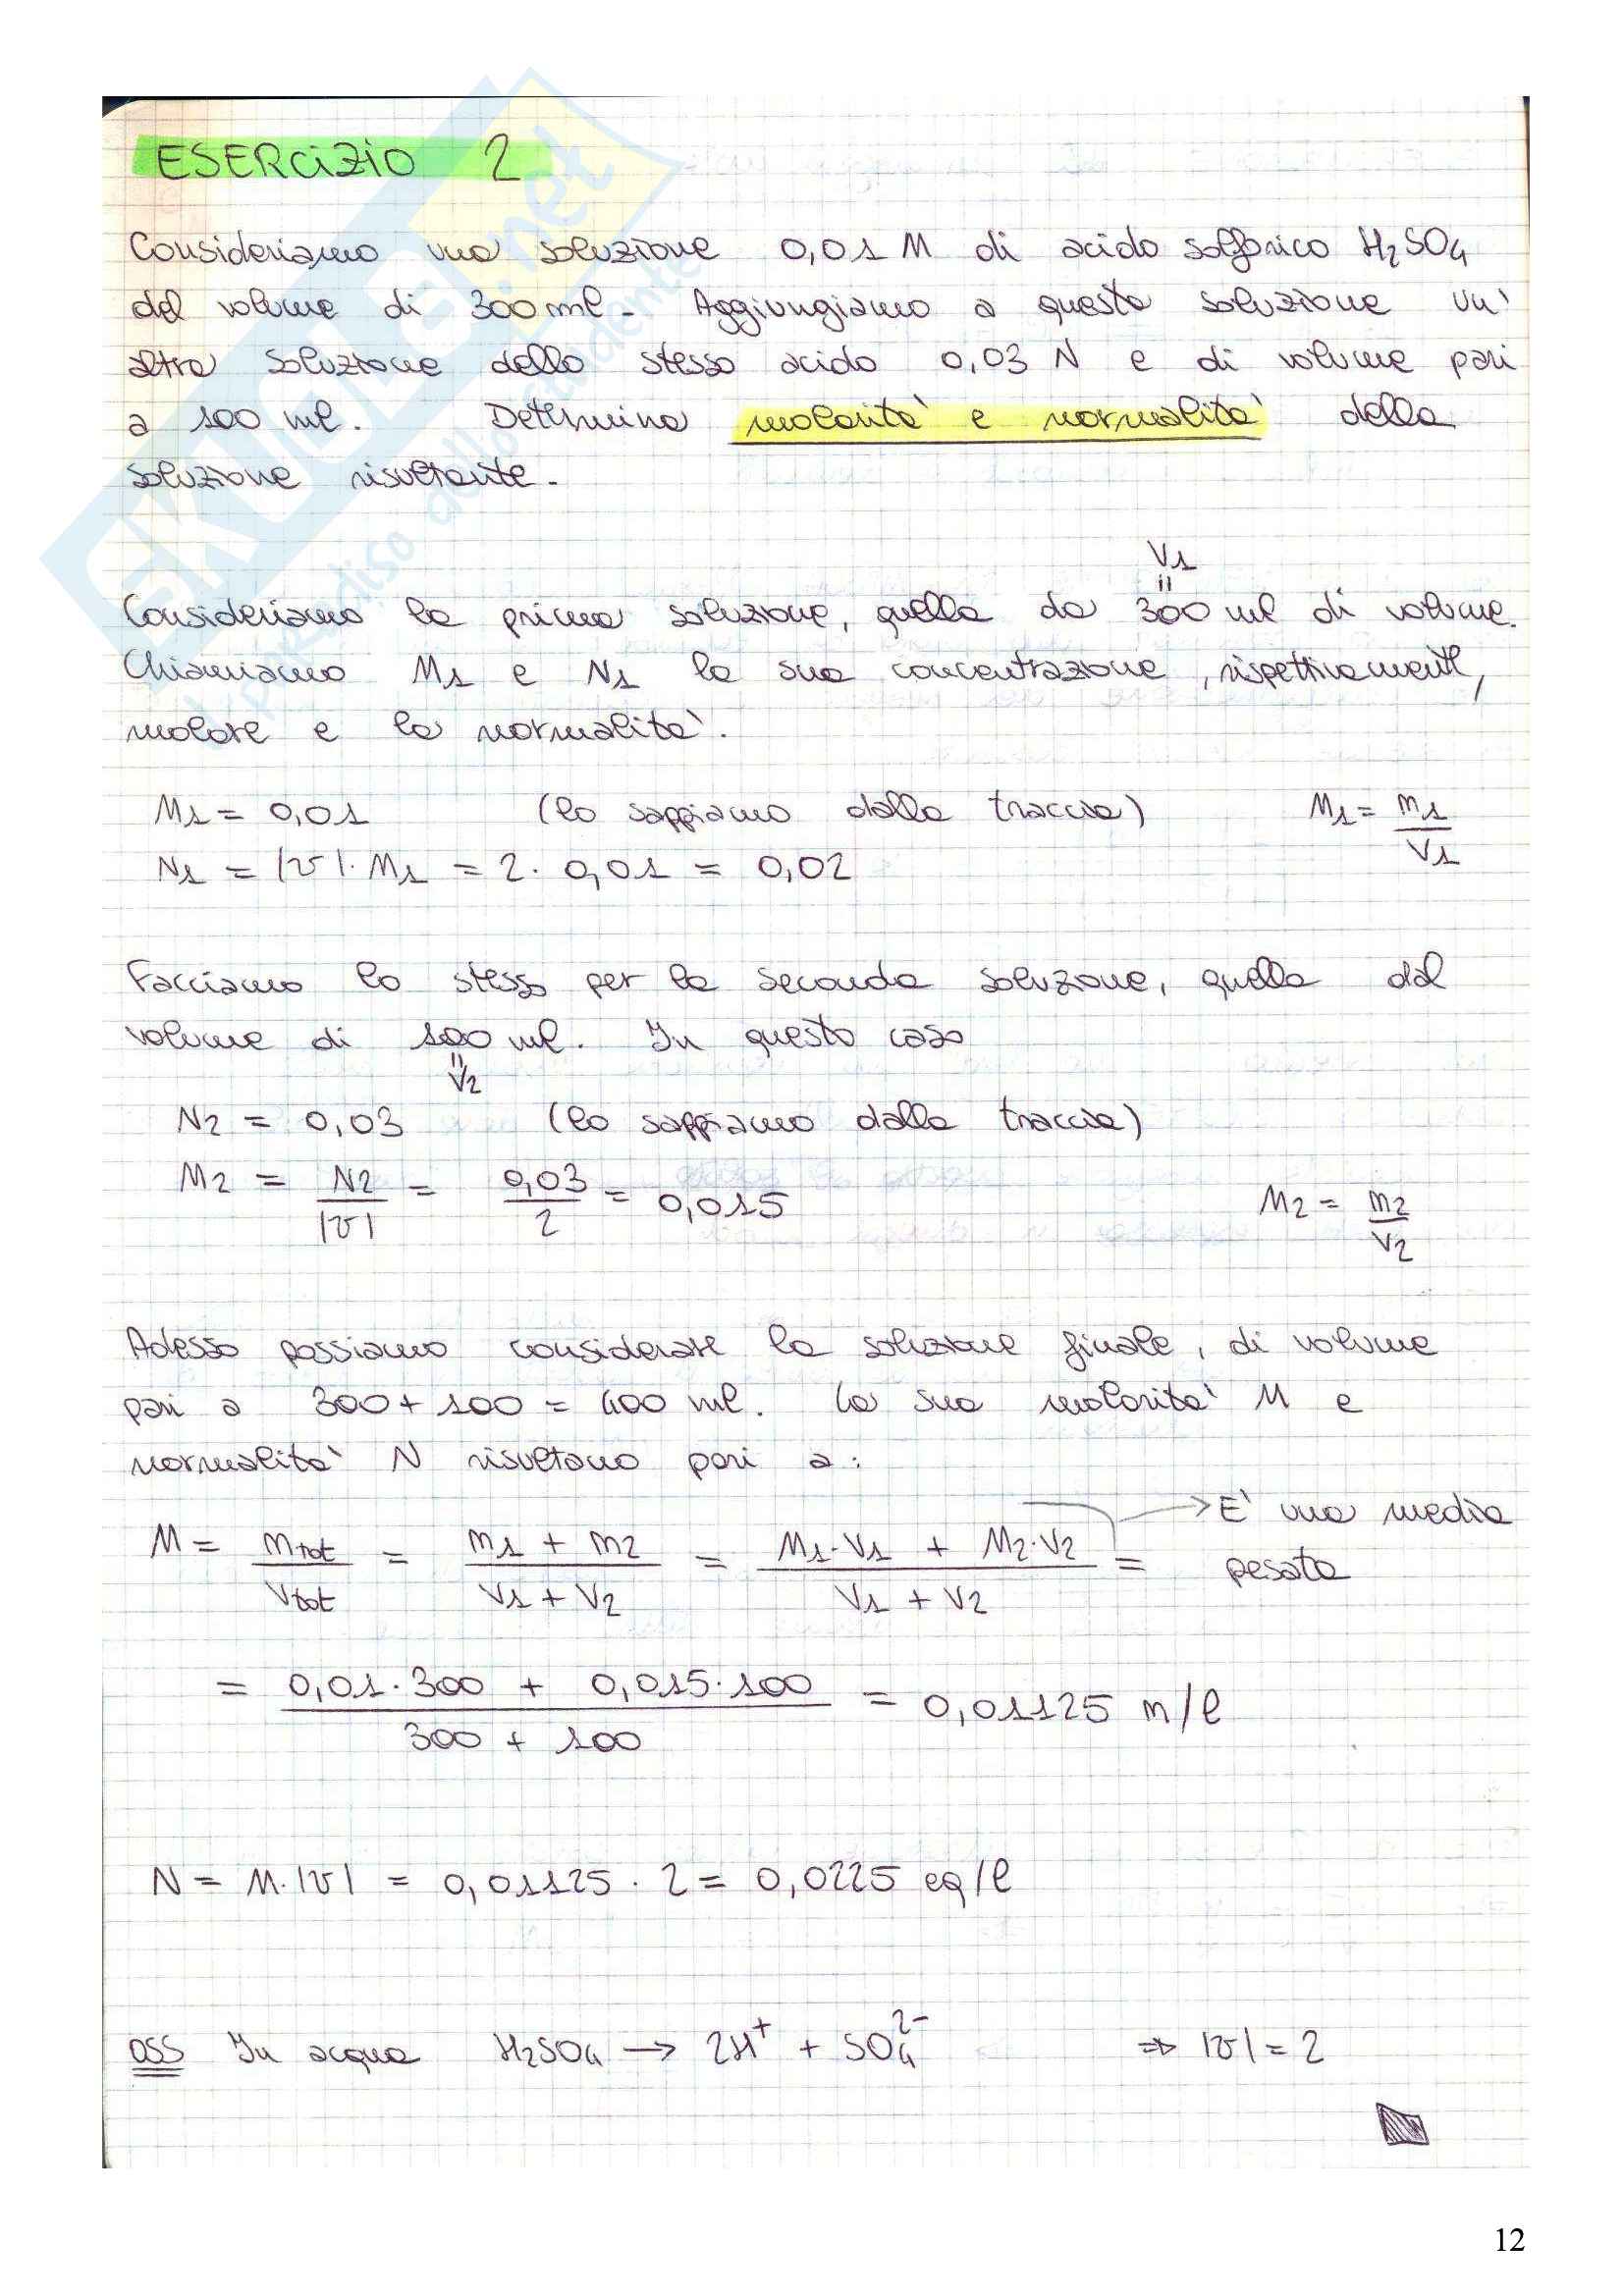 ESERCIZIO 2
Consideriamo una soluzione 0,01 M di acido solforico H₂SO₄
del volume di 300 ml. Aggiungiamo a questa soluzione un'
altra soluzione dello stesso acido 0,03 N e di volume pari
a 100 ml. Determina molarità e normalità della
soluzione risultante.
V₁
=
Consideriamo la prima soluzione, quella da 300 ml di volume.
Chiamiamo M₁ e N₁ la sua concentrazione, rispettivamente,
molare e la normalità.
M₁ = 0,01 (lo sappiamo dalla traccia) M₁ = m₁/V₁
N₁ = |v|·M₁ = 2 · 0,01 = 0,02
Facciamo lo stesso per la seconda soluzione, quella dal
volume di 100 ml. In questo caso
=
V₂
N₂ = 0,03 (lo sappiamo dalla traccia)
M₂ = N₂/|v| = 0,03/2 = 0,015 M₂ = m₂/V₂
Adesso possiamo considerare la soluzione finale, di volume
pari a 300 + 100 = 400 ml. La sua molarità M e
normalità N risultano pari a:
M = mtot/Vtot = (m₁ + m₂)/(V₁ + V₂) = (M₁·V₁ + M₂·V₂)/(V₁ + V₂) = → E' una media
pesata
= (0,01·300 + 0,015·100)/(300 + 100) = 0,01125 m/l
N = M·|v| = 0,01125 · 2 = 0,0225 eq/l
OSS In acqua H₂SO₄ → 2H⁺ + SO₄²⁻ ⇒ |v| = 2
12
SKUOLA.net
il paradiso dello studente